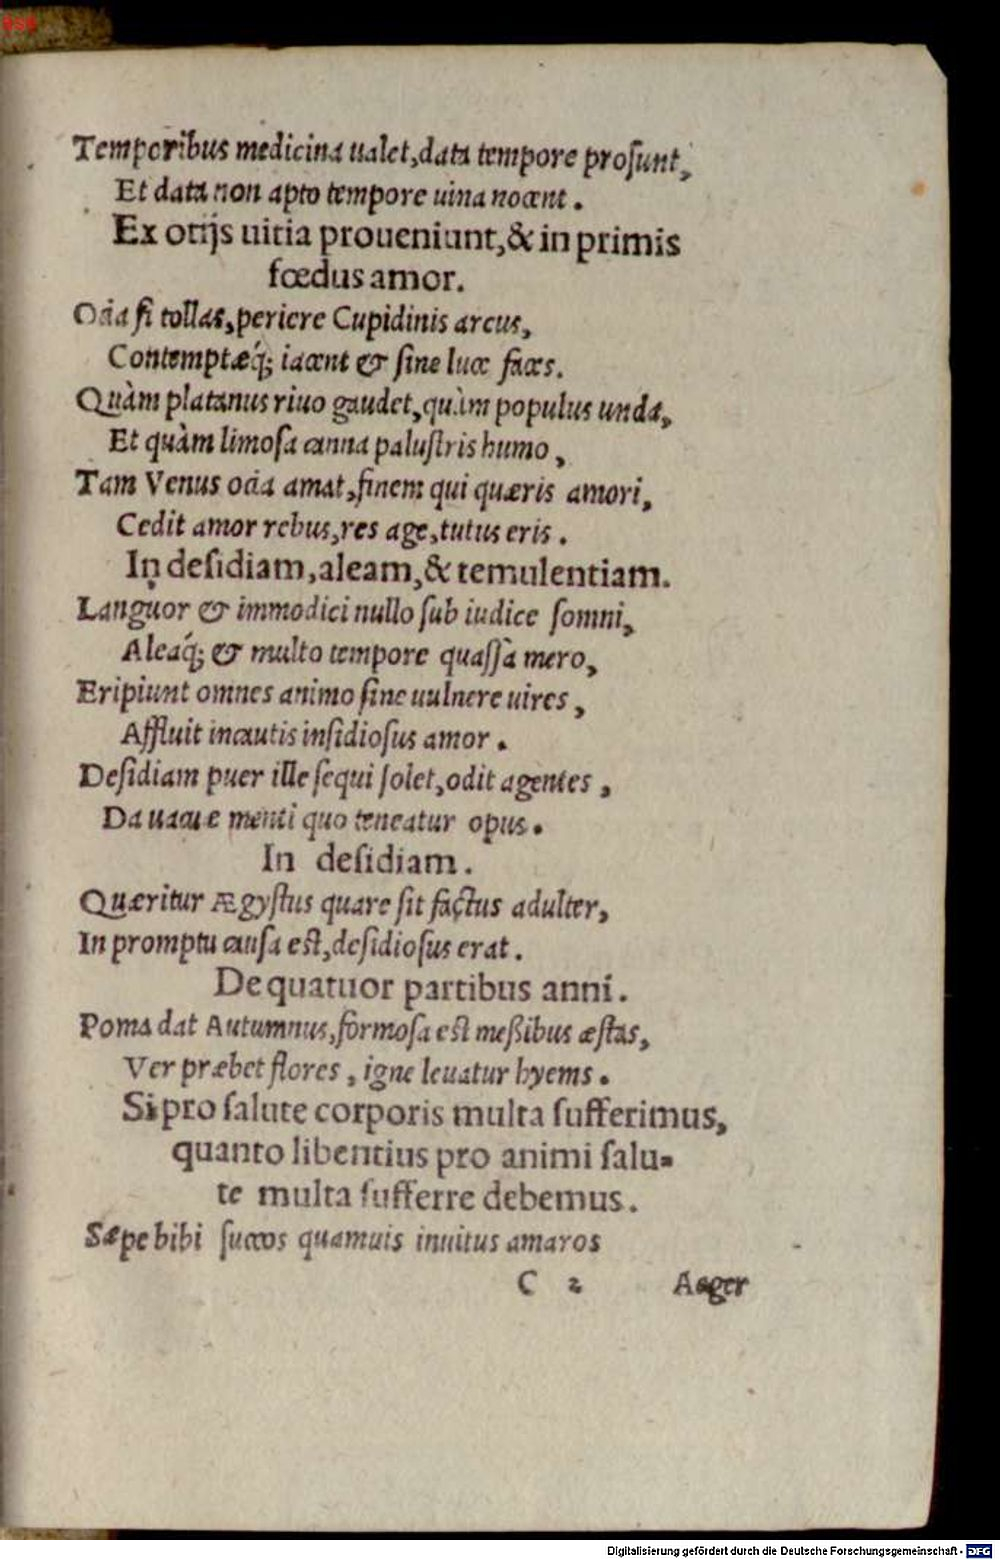 Temporibus medicina ualet, data tempore prosunt,
Et data non apto tempore uina nocent.
Ex otijs uitia proueniunt, & in primis
fœdus amor.
Ocia si tollas, periere Cupidinis arcus,
Contemptæq́; iacent & sine luce faces.
Quàm platanus riuo gaudet, quàm populus unda,
Et quàm limosa canna palustris humo,
Tam Venus ocia amat, finem qui quæris amori,
Cedit amor rebus, res age, tutus eris.
In desidiam, aleam, & temulentiam.
Languor & immodici nullo sub iudice somni,
Aleaq́; & multo tempore quassa mero,
Eripiunt omnes animo sine uulnere uires,
Affluit incautis insidiosus amor.
Desidiam puer ille sequi solet, odit agentes,
Da uacuæ menti quo teneatur opus.
In desidiam.
Quæritur Ægystus quare sit factus adulter,
In promptu causa est, desidiosus erat.
De quatuor partibus anni.
Poma dat Autumnus, formosa est meßibus æstas,
Ver præbet flores, igne leuatur hyems.
Si pro salute corporis multa sufferimus,
quanto libentius pro animi salu-
te multa sufferre debemus.
Sæpe bibi succos quamuis inuitus amaros
C 2 Aeger
Digitalisierung gefördert durch die Deutsche Forschungsgemeinschaft - DFG